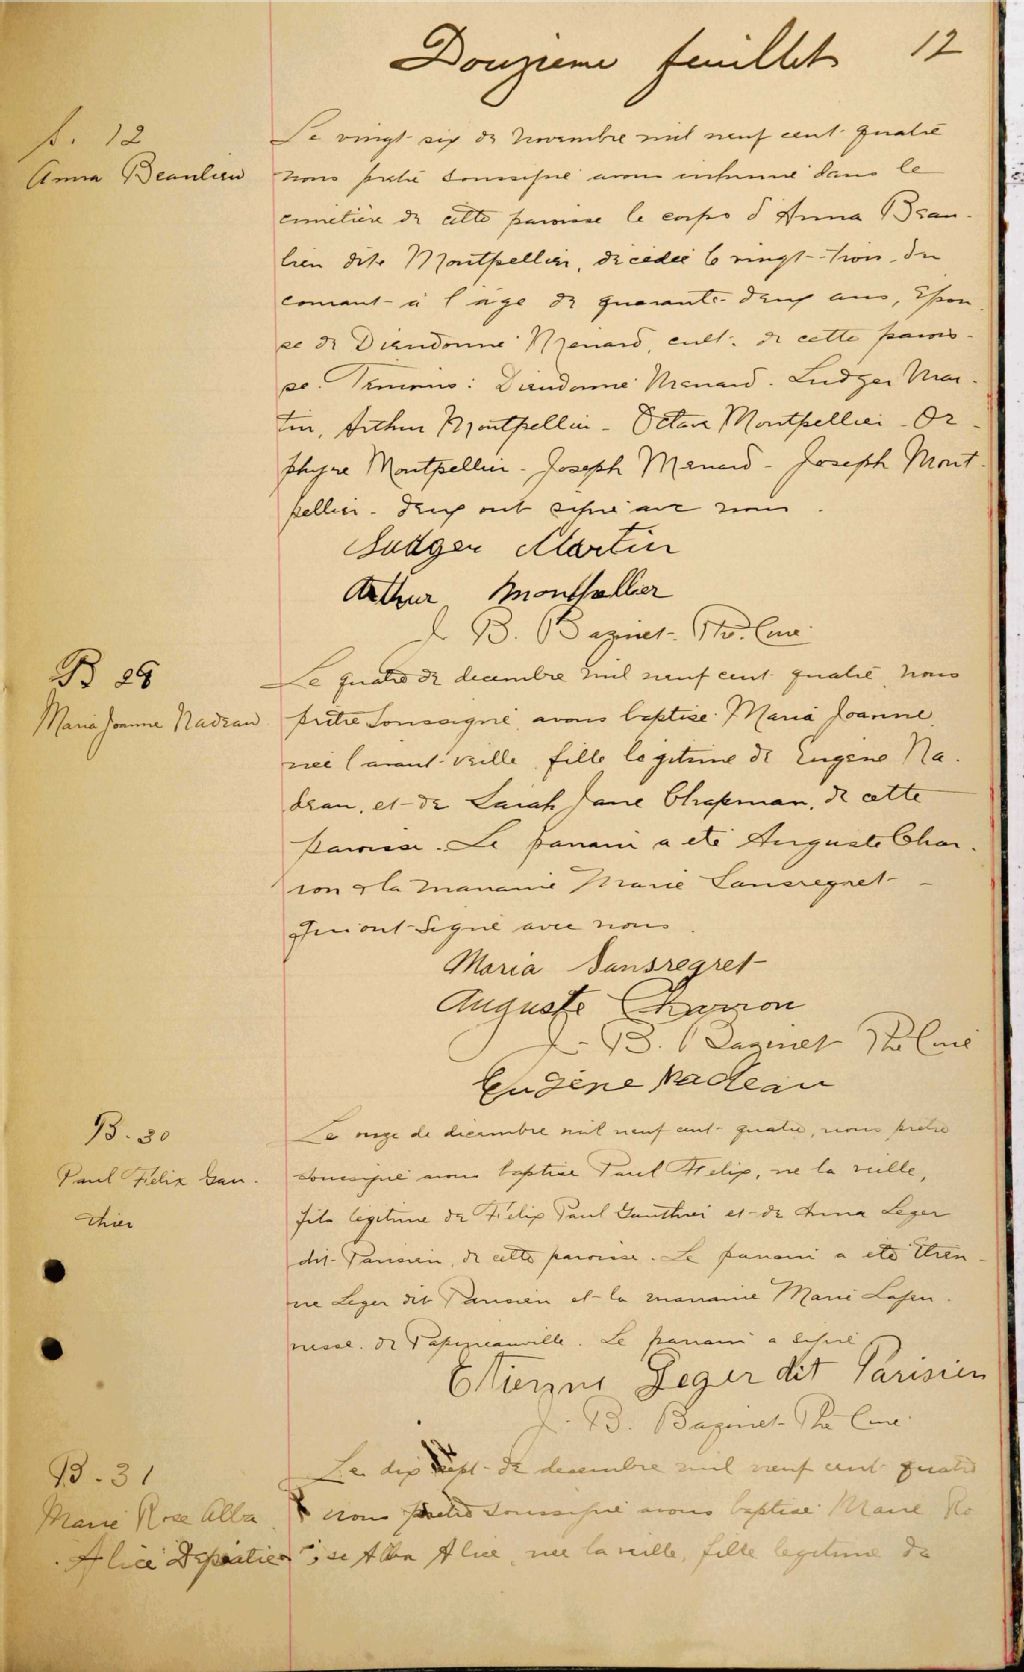 Douzieme feuillet 12
S. 12
Anna Beaulieu
Le vingt six de novembre mil neuf cent quatre
nous pretre soussigné avons inhumé dans le
cimetière de cette paroisse le corps d'Anna Beau-
lieu dite Montpellier, décédée le vingt-trois du
courant à l'age de quarante-deux ans, épou
se de Dieudonné Menard, cult. de cette parois-
se. Témoins: Dieudonné Menard. Ludger Mar-
tin, Arthur Montpellier - Octave Montpellier - Or-
phyre Montpellier - Joseph Menard - Joseph Mont-
pellier - deux ont signé avec nous.
Ludger Martin
Arthur Montpellier
J. B. Bazinet Ptre Curé
B 29
Maria Joanne Nadeau
Le quatre de decembre mil neuf cent quatre nous
prêtre soussigné avons baptisé Maria Joanne
née l'avant-veille fille légitime de Eugène Na-
deau, et de Sarah Jane Chapman, de cette
paroisse. Le parrain a été Auguste Char-
ron & la marraine Marie Sansregret -
qui ont signé avec nous.
Maria Sansregret
Auguste Charron
J. B. Bazinet Ptre Curé
Eugène Nadeau
B. 30
Paul Félix Gau-
thier
Le onze de décembre mil neuf cent quatre, nous prêtre
soussigné avons baptisé Paul Félix, né la veille,
fils légitime de Félix Paul Gauthier et de Anna Leger
dit Parisien, de cette paroisse. Le parrain a été Etien-
ne Leger dit Parisien et la marraine Marie Lajeu-
nesse de Papineauville. Le parrain a signé
Etienne Leger dit Parisien
J. B. Bazinet Ptre Curé
B. 31
Marie Rose Alba
Alice Depatie
Le dix sept de decembre mil neuf cent quatre
nous pretre soussigné avons baptisé Marie Ro
se Alba Alice, née la veille, fille legitime de